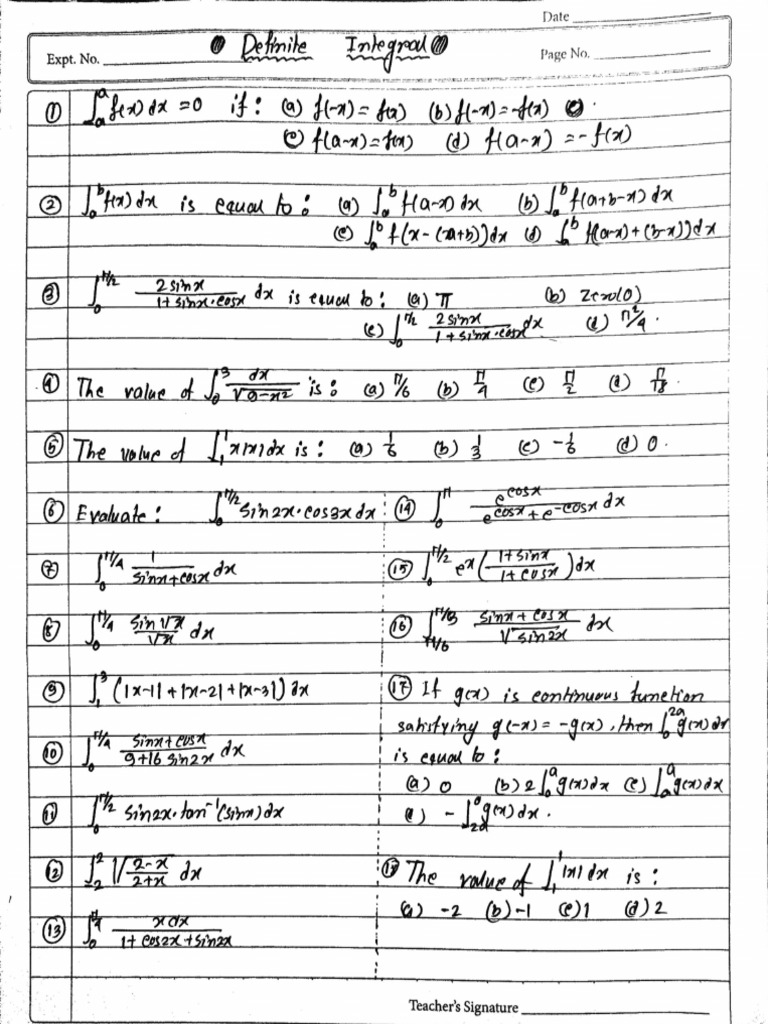 Date
Expt. No.
Definite Integral
Page No.
① ∫₋ₐᵃ f(x) dx = 0 if : (a) f(-x) = f(x) (b) f(-x) = -f(x)
(c) f(a-x) = f(x) (d) f(a-x) = -f(x)
② ∫ₐᵇ f(x) dx is equal to : (a) ∫ₐᵇ f(a-x) dx (b) ∫ₐᵇ f(a+b-x) dx
(c) ∫ₐᵇ f(x-(a+b)) dx (d) ∫ₐᵇ f((a-x)+(b-x)) dx
③ ∫₀^π/2 2sinx/(1+sinx·cosx) dx is equal to : (a) π (b) Zero(0)
(c) ∫₀^π/2 2sinx/(1+sinx·cosx) dx (d) π²/4.
④ The value of ∫₀³ dx/√(9-x²) is : (a) π/6 (b) π/4 (c) π/2 (d) π/18.
⑤ The value of ∫₋₁¹ x|x| dx is : (a) 1/6 (b) 1/3 (c) -1/6 (d) 0.
⑥ Evaluate : ∫₀^π/2 sin2x·cos3x dx
⑦ ∫₀^π/4 1/(sinx+cosx) dx
⑧ ∫₀^π/4 sin√x/√x dx
⑨ ∫₁³ (|x-1|+|x-2|+|x-3|) dx
⑩ ∫₀^π/4 (sinx+cosx)/(9+16 sin2x) dx
⑪ ∫₀^π/2 sin2x·tan⁻¹(sinx) dx
⑫ ∫₋₂² √((2-x)/(2+x)) dx
⑬ ∫₀^π/4 x dx/(1+cos2x+sin2x)
⑭ ∫₀^π e^cosx/(e^cosx+e^-cosx) dx
⑮ ∫₀^π/2 eˣ((1+sinx)/(1+cosx)) dx
⑯ ∫π/6^π/3 (sinx+cosx)/√sin2x dx
⑰ If g(x) is continuous function
satisfying g(-x) = -g(x), then ∫₀^2a g(x) dx
is equal to :
(a) 0 (b) 2∫₀ᵃ g(x) dx (c) ∫₋ₐᵃ g(x) dx
(d) -∫₂ₐ⁰ g(x) dx.
⑱ The value of ∫₋₁¹ |x| dx is :
(a) -2 (b) -1 (c) 1 (d) 2
Teacher's Signature